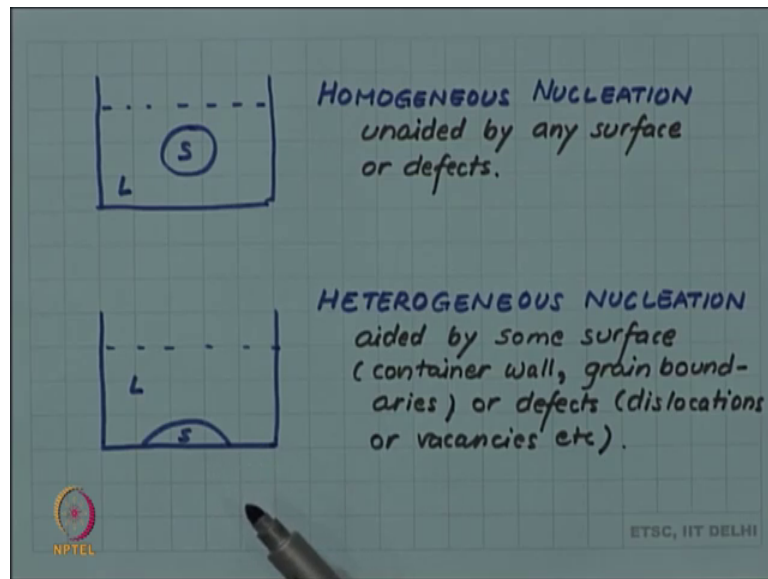 HOMOGENEOUS NUCLEATION
unaided by any surface
or defects.
S
L
HETEROGENEOUS NUCLEATION
aided by some surface
(container wall, grain bound-
aries) or defects (dislocations
or vacancies etc).
L
S
NPTEL
ETSC, IIT DELHI